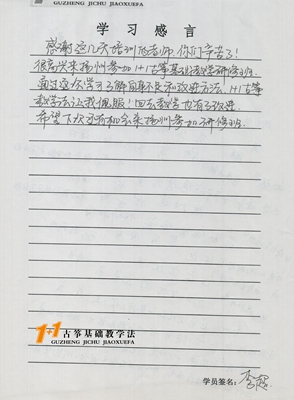 GUZHENG JICHU JIAOXUEFA
学习感言
感谢这几天培训班老师,你们辛苦了!
很高兴来扬州参加1+1古筝基础教学研修班。
通过这次学习了解自身不足和改进方法,1+1古筝
教学法让我佩服!回去教学也有了改进。
希望下次还有机会来扬州参加研修班。
1+1古筝基础教学法
GUZHENG JICHU JIAOXUEFA
学员签名: